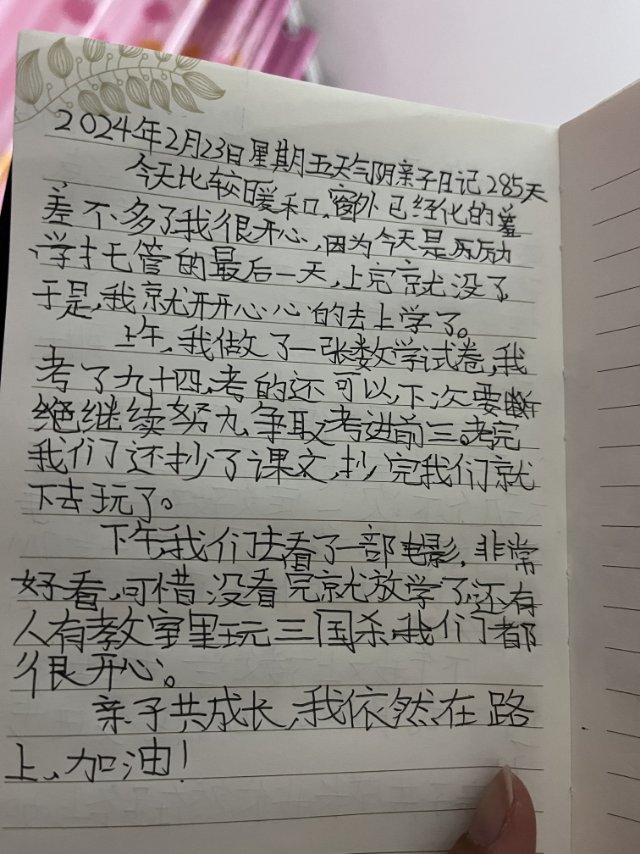 2024年2月23日星期五天气阴亲子日记285天
今天比较暖和,窗外已经化的
差不多了我很开心,因为今天是历励
学扌乇管的最后一天,上完就没了
于是,我就开开心心的去上学了。
上午,我做了一张数学试卷,我
考了九十四,考的还可以,下次要断
绝继续努力,争取考进前三。考完
我们还抄了课文,抄完我们就
下去玩了。
下午,我们去看了一部电影,非常
好看,可惜没看完就放学了,还有
人有教室里玩三国杀,我们都
很开心。
亲子共成长,我依然在路
上,加油!